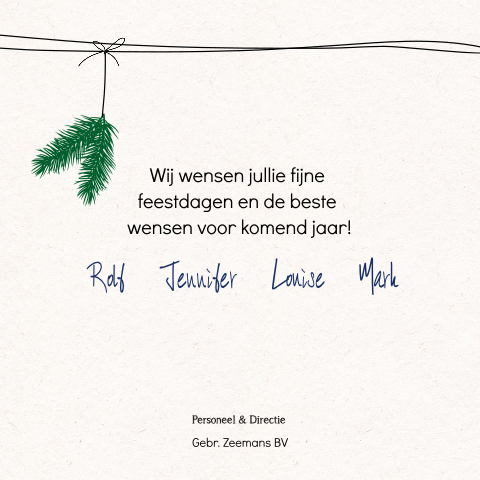 Wij wensen jullie fijne
feestdagen en de beste
wensen voor komend jaar!
Rolf Jennifer Louise Mark
Personeel & Directie
Gebr. Zeemans BV